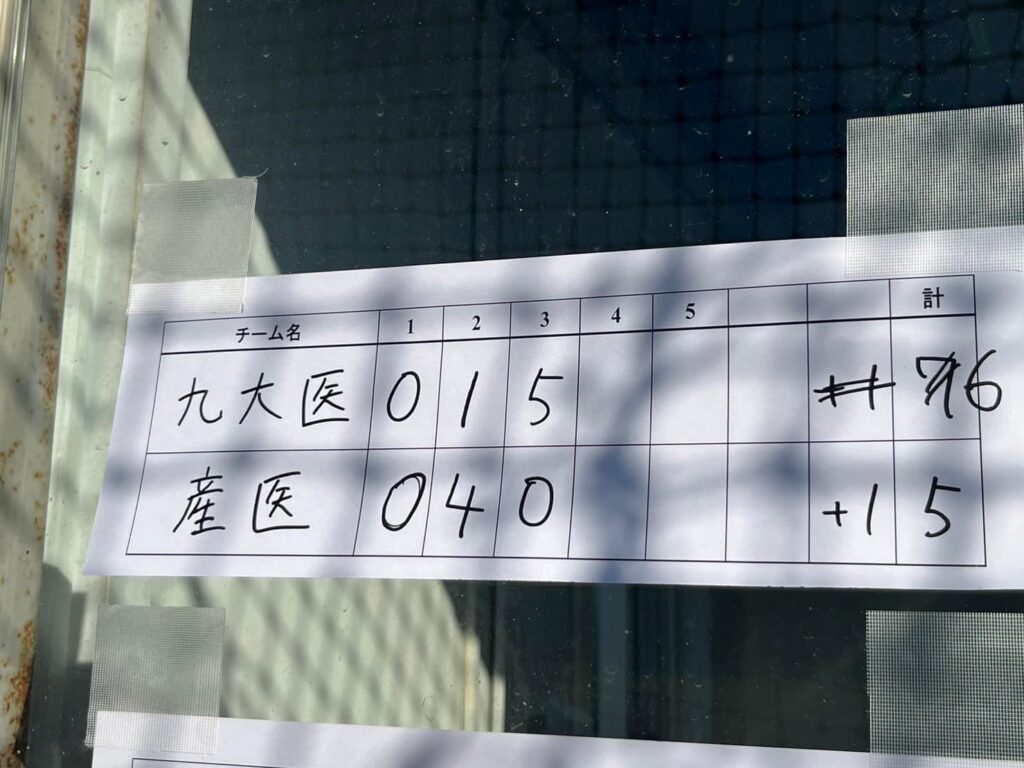 チーム名 1 2 3 4 5 計
九大医 0 1 5 6
産医 0 4 0 +1 5